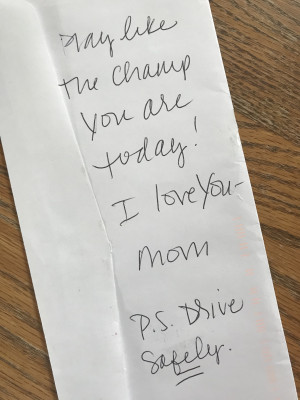 Play like
the champ
you are
today!
I love you-
mom
P.S. Drive
Safely.